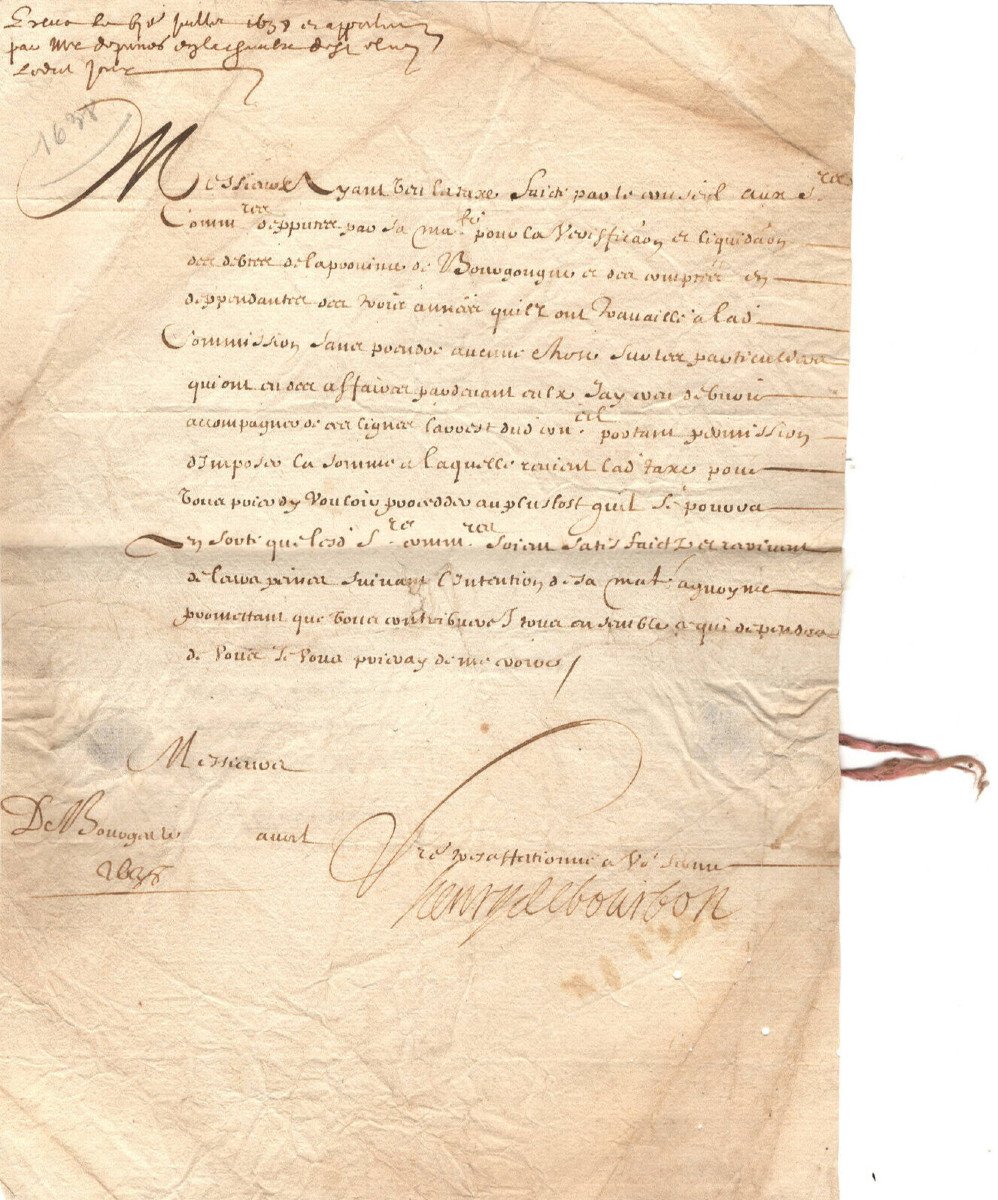 Receu le juillet 1638 et apporté
par Mre
Ledit jour
1638
Messieurs Ayant veu la taxe faicte par le conseil aux Srs
Commres depputez par sa maté pour la veriffication et liquidaon
des debtes de la province de Bourgongne et des comptes en
deppendantes des trois années quilz ont travaillé a lad
Commission sans prendre aucune chose sur les particuliers
qui ont eu des affaires pardevant eulx Jay creu debvoir
accompagner de ces lignes larrest dud conel portant permission
dimposer la somme a laquelle revient lad taxe pour
vous prier dy vouloir procedder au plustost quil se pourra
En sorte que lesd Srs commres soient satisfaictz et
de leurs peines suivant lintention de sa maté a quoy me
promettant que vous contribuerez tous ensemble ce qui dependra
de vous Je vous prieray de me croire /
Messieurs
De
1638
avril
Vre tres affectionné a vous servir
Henry de bourbon